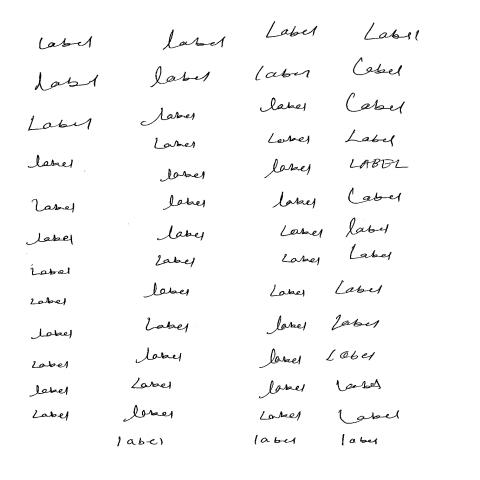 Label label Label Label
Label label label Label
Label label label Label
label Label Label Label
label label label LABEL
Label label label Label
label label Label label
Label Label Label Label
Label label Label Label
label Label label Label
Label label label Label
label Label label Label
Label label Label Label
label label label